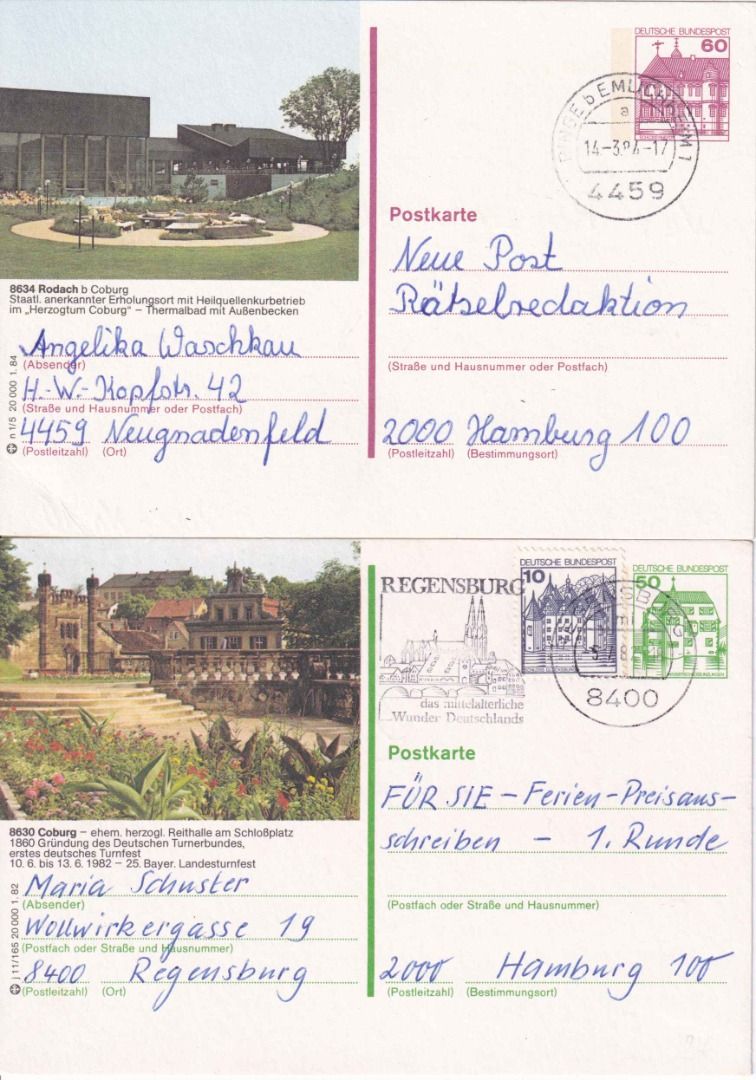 DEUTSCHE BUNDESPOST
60
RINGE b EMLICHHEIM 1
a
14.-3.84-17
4459
Postkarte
Neue Post
Rätselredaktion
(Straße und Hausnummer oder Postfach)
2000 Hamburg 100
(Postleitzahl) (Bestimmungsort)
8634 Rodach b Coburg
Staatl. anerkannter Erholungsort mit Heilquellenkurbetrieb
im „Herzogtum Coburg" – Thermalbad mit Außenbecken
Angelika Waschkau
(Absender)
H.-W.-Kopfstr. 42
(Straße und Hausnummer oder Postfach)
4459 Neugnadenfeld
(Postleitzahl) (Ort)
n 1/5 20 000 1. 84
REGENSBURG
das mittelalterliche
Wunder Deutschlands
10
DEUTSCHE BUNDESPOST
DEUTSCHE BUNDESPOST
50
8400
Postkarte
FÜR SIE – Ferien-Preisaus-
schreiben – 1. Runde
(Postfach oder Straße und Hausnummer)
2000 Hamburg 100
(Postleitzahl) (Bestimmungsort)
8630 Coburg – ehem. herzogl. Reithalle am Schloßplatz
1860 Gründung des Deutschen Turnerbundes,
erstes deutsches Turnfest
10. 6. bis 13. 6. 1982 – 25. Bayer. Landesturnfest
Maria Schuster
(Absender)
Wollwirkergasse 19
(Postfach oder Straße und Hausnummer)
8400 Regensburg
(Postleitzahl) (Ort)
j 11/165 20 000 1. 82